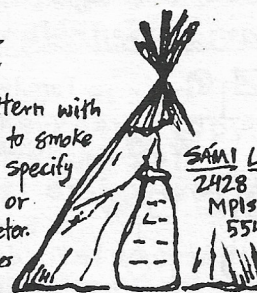 ttern with
to smoke
specify
or
ter.
es
SÁMI L
2428
Mpls
554